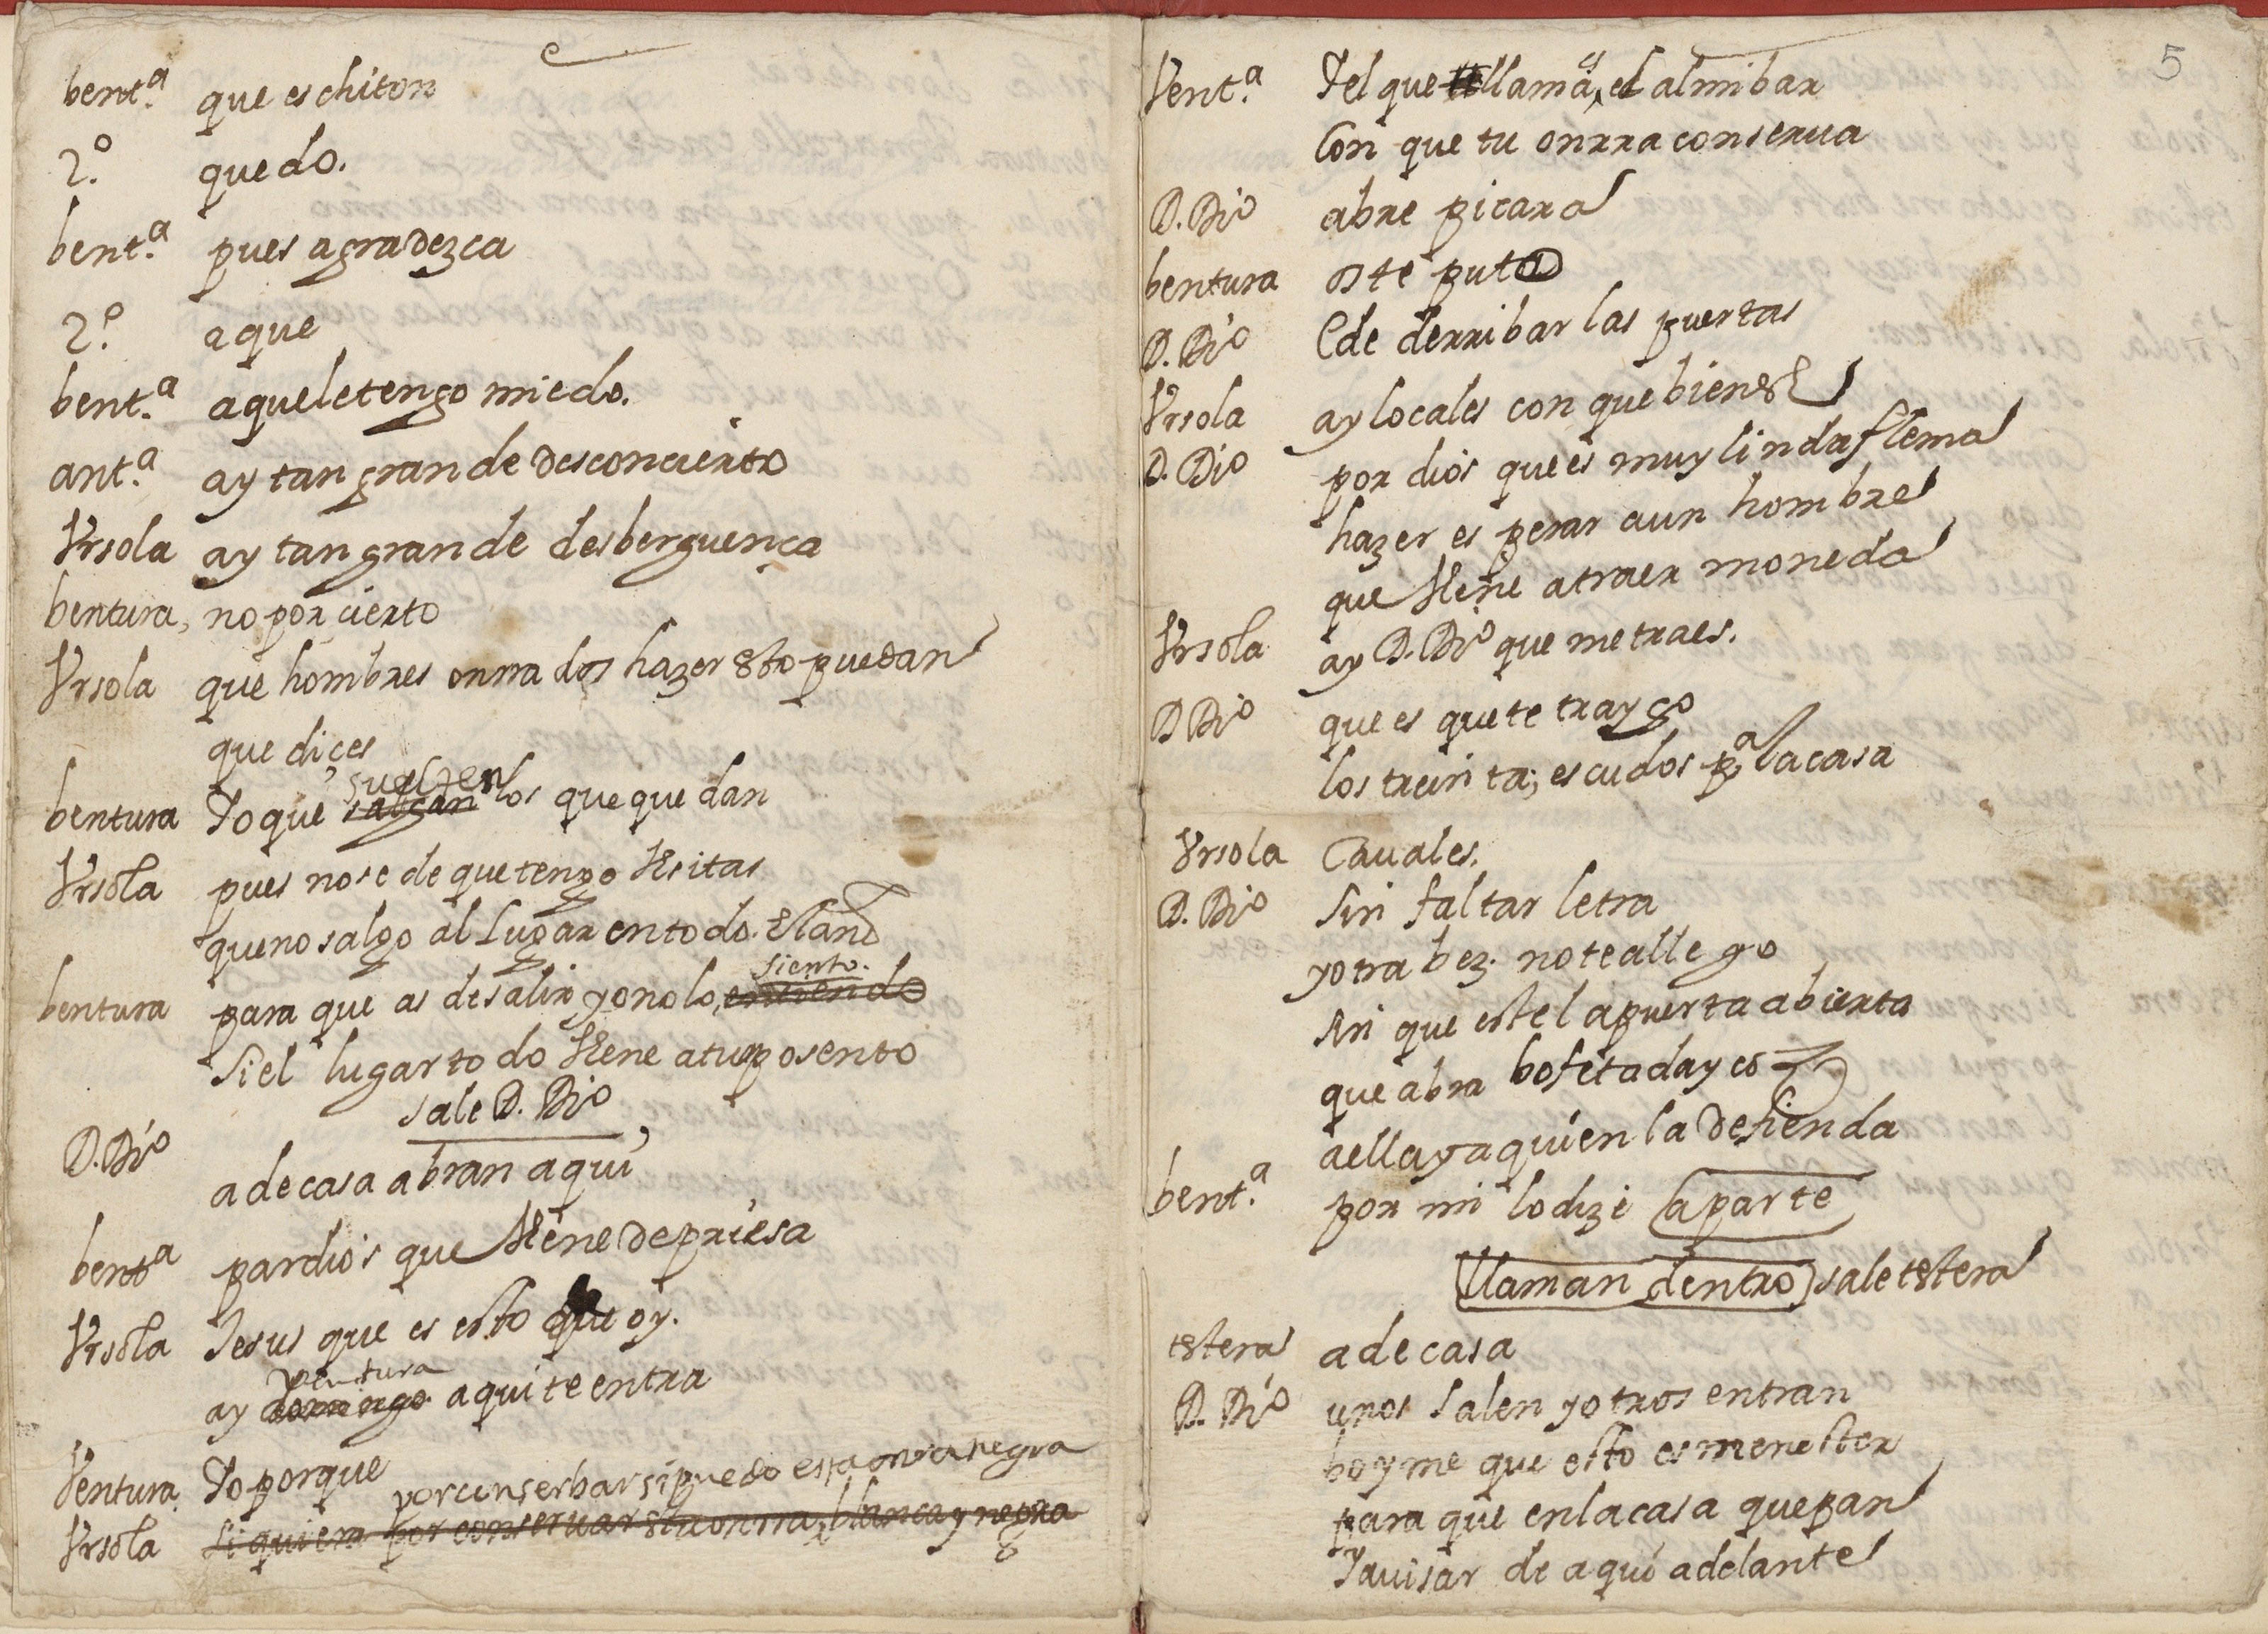 bent.ª que es chiton
2.º quedo.
bent.ª pues agradezca
2.º aque
bent.ª aqueletengo miedo.
ant.ª ay tan grande desconcierto
Vrsola ay tan grande desberguença
bentura, no por cierto
Vrsola que hombres onrrados hazer esto puedan
que dices
suelten
bentura Yo que salgan los que quedan
Vrsola pues nose de quetengo Vesitas
queno salgo al Lugar entodo el año
siento.
bentura para que as desalir yo no lo entiendo
Si el lugar todo Viene atuaposento
sale D. Dio
D. Dio adecasa abran aqui
bentª pardios que Viene depriesa
Vrsola Jesus que es esto que oy.
ventura
ay domingo aqui te entra
Ventura. Yo porque
por conserbar si puedo esta onrra negra
Vrsola Siquiera por conseruar esta onrra, blanca y negra
5
Vent.ª Yel que llama, el almibar
Con que tu onrra conserua
D. Dio abre picara
bentura oste puto
D. Dio E de derribar las puertas
Vrsola ay locales con que biene
D. Dio por dios que es muy linda flema
hazer esperar aun hombre
que Viene atraer moneda
Vrsola ay D. Dio que metraes.
D Dio que es quete traygo
los treinta, escudos pª la casa
Vrsola Cauales.
D. Dio Sin faltar letra
yotra bez. notealle yo
sin que este lapuerta abierta
que abra bofetada y coz
aella ya quien la defienda
bent.ª por mi lo dize aparte
llaman dentro sale estera
estera adecasa
D. Dio unos salen yotros entran
boyme que esto es menester
para que enlacasa quepan
Yauisar de aqui adelante